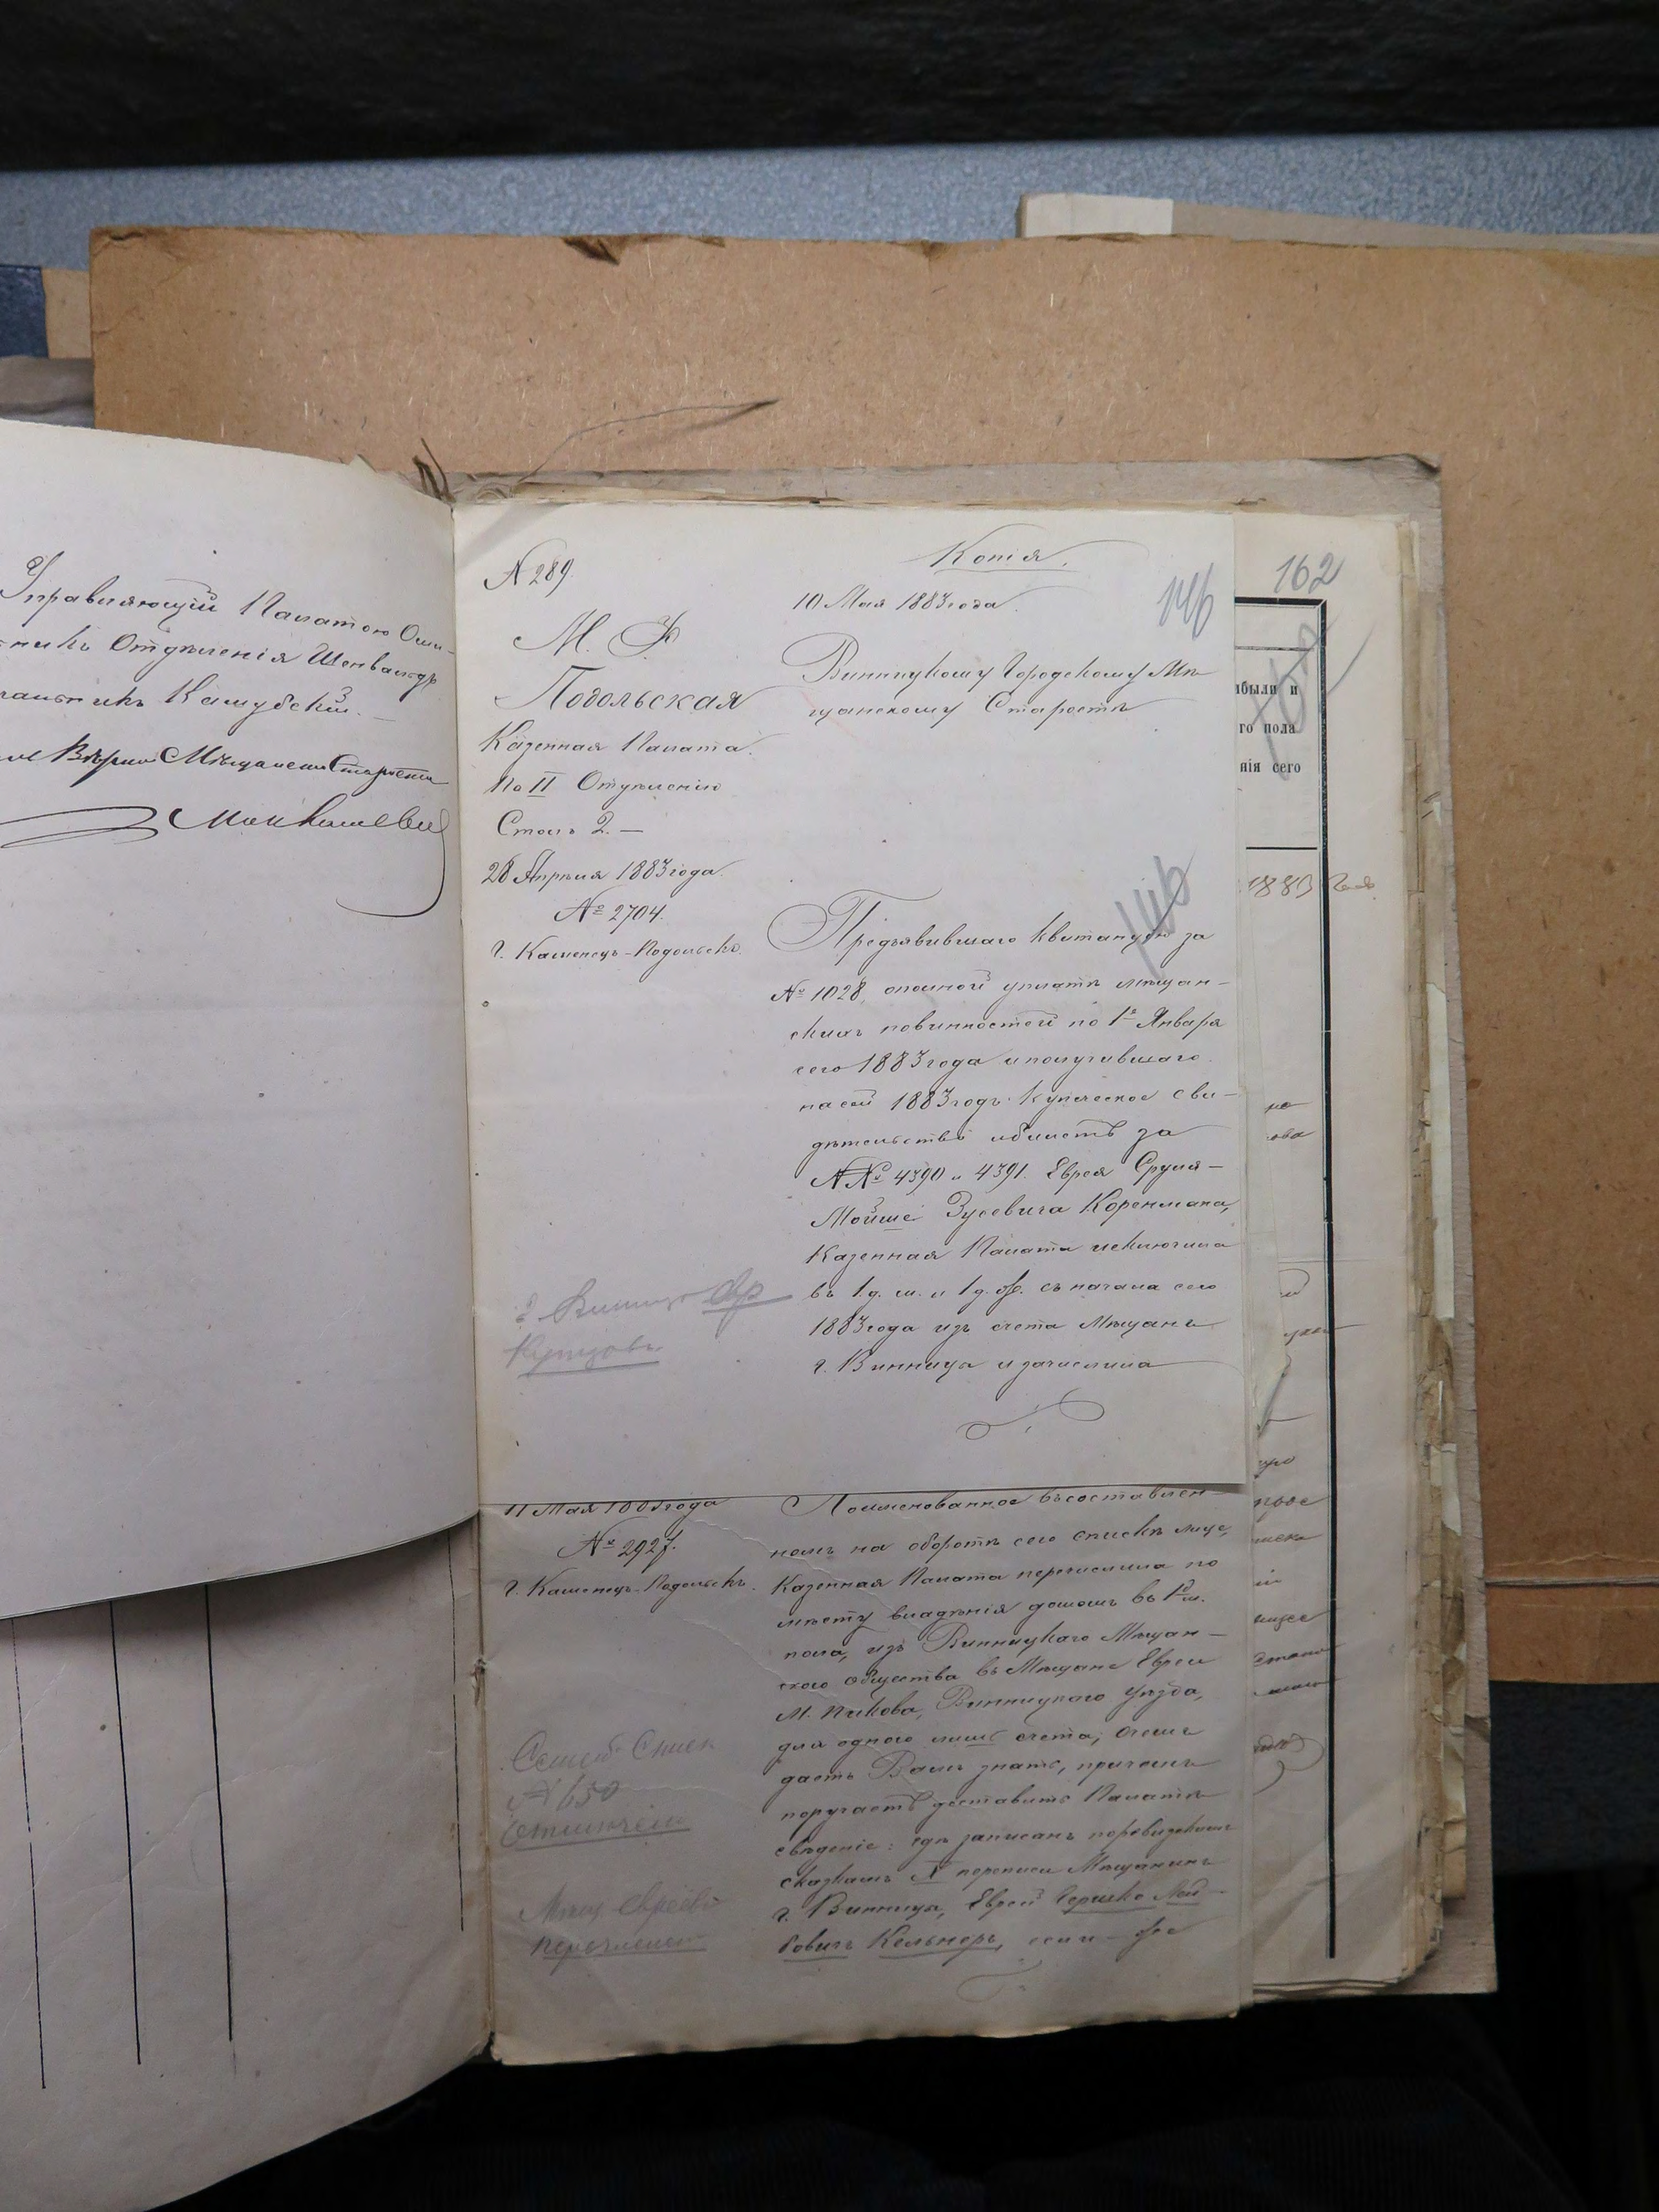 Управляющій Палатою
Отдѣленія
Вѣрно Мѣщанскій Староста
№ 289.
М. Ф.
Подольская
Казенная Палата.
По II Отдѣленію
Столъ 2. —
28 Апрѣля 1883 года.
№ 2704.
г. Каменецъ-Подольскъ.
Копія.
10 Мая 1883 года.
146
Винницкому Городскому Мѣ
щанскому Старостѣ
146
Предъявившаго квитанцію за
№ 1028, о полной уплатѣ мѣщан-
скихъ повинностей по 1е Января
сего 1883 года и получившаго
на сей 1883 годъ Купеческое сви-
дѣтельство и билетъ за
№№ 4390 и 4391. Еврея Сруля-
Мойше Зусевича Коренмана,
Казенная Палата исключила
въ 1 д. м. и 1 д. ж. съ начала сего
1883 года изъ счета Мѣщанъ
г. Винница и зачислила
г. Винница Евр
Купцовъ
11 Мая 1883 года
№ 2927.
г. Каменецъ-Подольскъ.
Поименованное въ составлен-
номъ на оборотѣ сего спискѣ лице,
Казенная Палата перечислила по
мѣсту владѣнія домомъ въ 1 д. м.
пола, изъ Винницкаго Мѣщан-
скаго общества въ Мѣщане Евреи
М. Пикова, Винницкаго уѣзда,
для одного лишь счета, о чемъ
даетъ Вамъ знать, причемъ
поручаетъ доставить Палатѣ
свѣденіе: гдѣ записанъ по ревизскимъ
сказкамъ X переписи Мѣщанинъ
г. Винницы, Еврей Гершко Лей-
бовичъ Кельнеръ, если-же
Семей Списк
№ 450
Мѣщ Евреевъ
162
были и
го пола
нія сего
1883 года